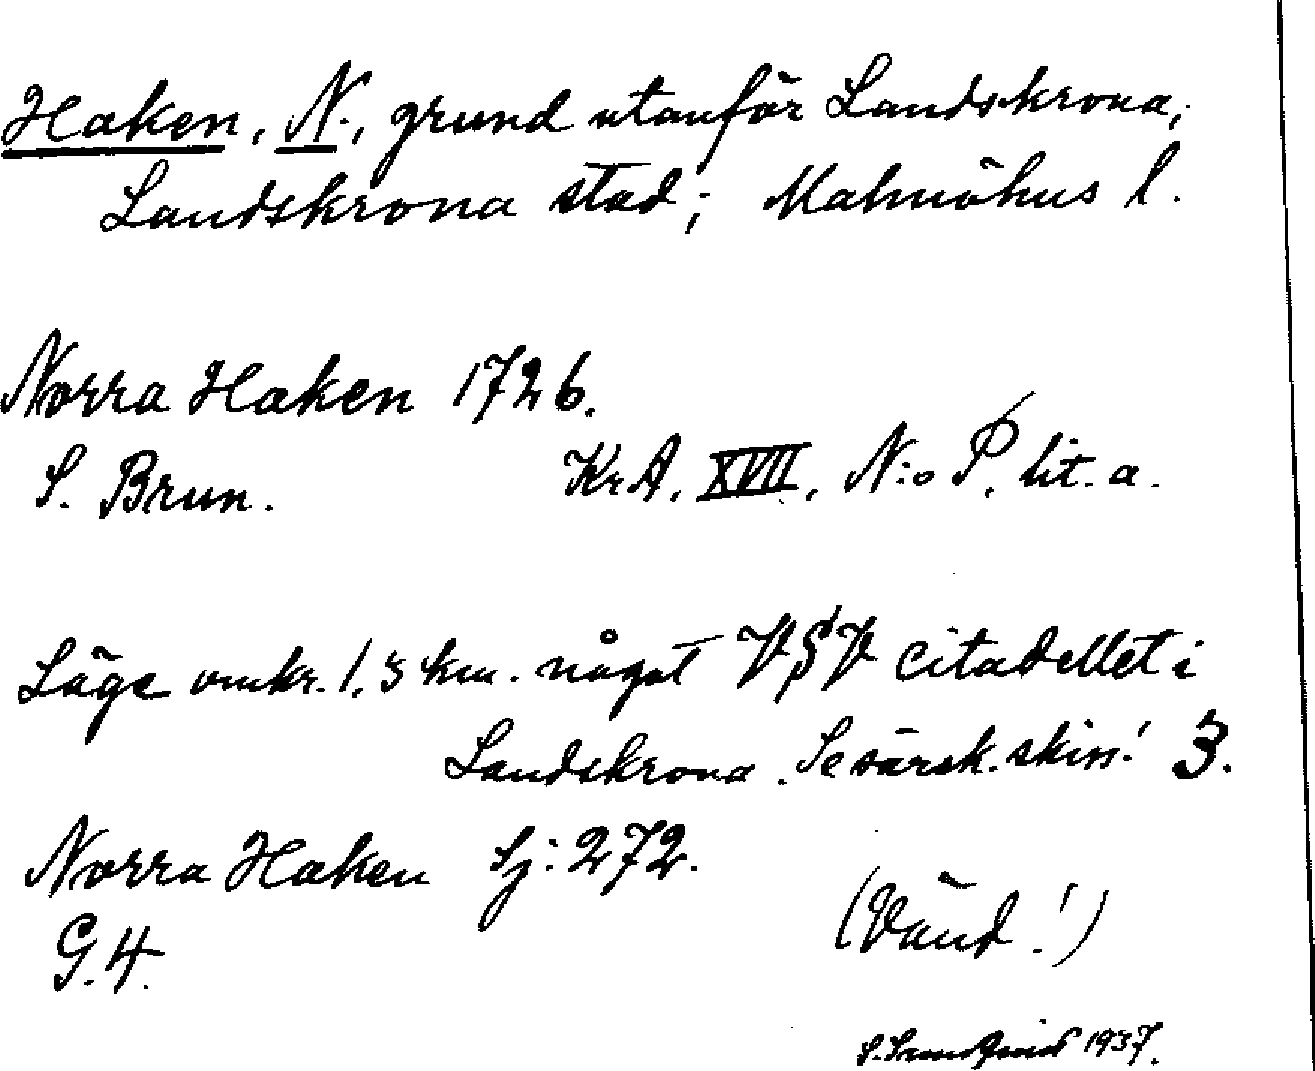 Haken, N., grund utanför Landskrona,
Landskrona stad; Malmöhus l.
Norra Haken 1726.
S. Brun. KrA, XVII, N:o P. lit. a.
Läge omkr. 1.3 km. något VSV citadellet i
Landskrona. Se särsk. skiss! 3.
Norra Haken Sj: 272.
G. 4.
(Vänd!)
S. 1937.